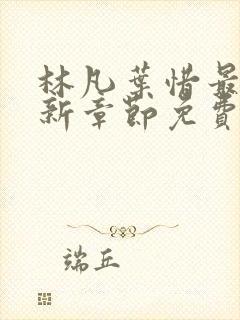 林凡葉惜最
新章節免費
端丘